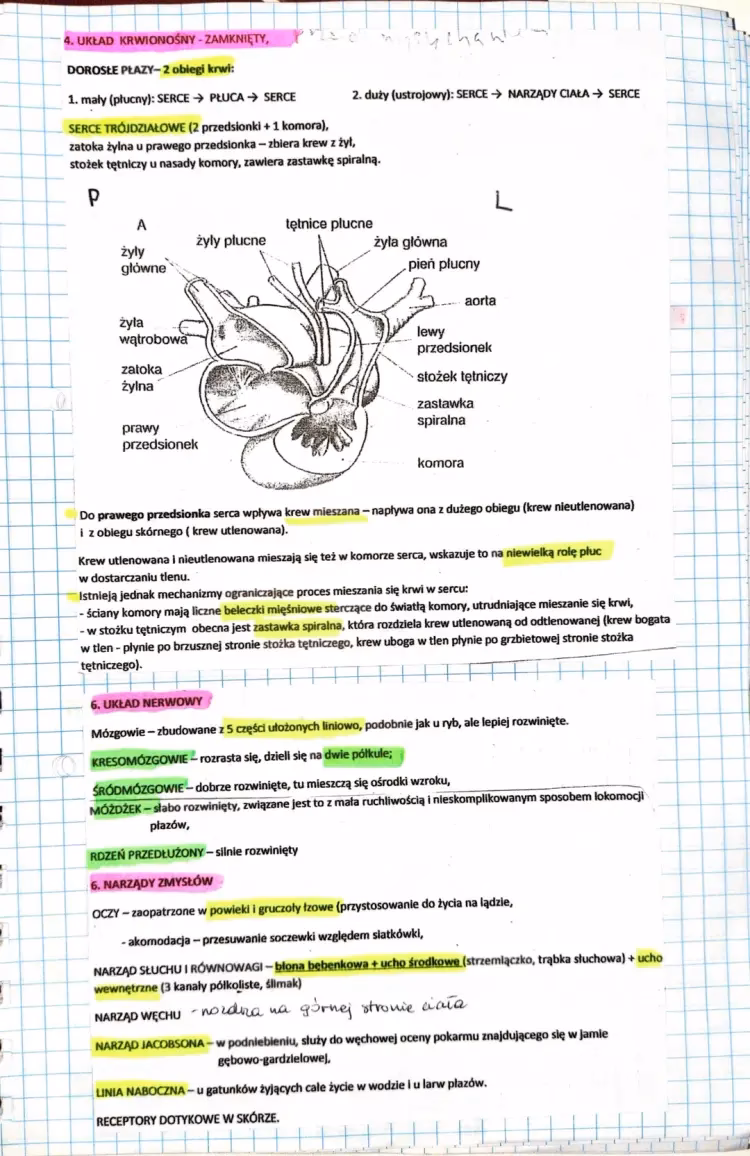 4. UKŁAD KRWIONOŚNY - ZAMKNIĘTY,
DOROSŁE PŁAZY– 2 obiegi krwi:
1. mały (płucny): SERCE → PŁUCA → SERCE 2. duży (ustrojowy): SERCE → NARZĄDY CIAŁA → SERCE
SERCE TRÓJDZIAŁOWE (2 przedsionki + 1 komora),
zatoka żylna u prawego przedsionka – zbiera krew z żył,
stożek tętniczy u nasady komory, zawiera zastawkę spiralną.
P L
A
tętnice płucne
żyły płucne
żyła główna
żyły
główne
pień płucny
aorta
żyła
wątrobowa
lewy
przedsionek
zatoka
żylna
stożek tętniczy
zastawka
spiralna
prawy
przedsionek
komora
Do prawego przedsionka serca wpływa krew mieszana – napływa ona z dużego obiegu (krew nieutlenowana)
i z obiegu skórnego ( krew utlenowana).
Krew utlenowana i nieutlenowana mieszają się też w komorze serca, wskazuje to na niewielką rolę płuc
w dostarczaniu tlenu.
Istnieją jednak mechanizmy ograniczające proces mieszania się krwi w sercu:
- ściany komory mają liczne beleczki mięśniowe sterczące do światłą komory, utrudniające mieszanie się krwi,
- w stożku tętniczym obecna jest zastawka spiralna, która rozdziela krew utlenowaną od odtlenowanej (krew bogata
w tlen - płynie po brzusznej stronie stożka tętniczego, krew uboga w tlen płynie po grzbietowej stronie stożka
tętniczego).
6. UKŁAD NERWOWY
Mózgowie – zbudowane z 5 części ułożonych liniowo, podobnie jak u ryb, ale lepiej rozwinięte.
KRESOMÓZGOWIE – rozrasta się, dzieli się na dwie półkule;
ŚRÓDMÓZGOWIE – dobrze rozwinięte, tu mieszczą się ośrodki wzroku,
MÓŻDŻEK – słabo rozwinięty, związane jest to z mała ruchliwością i nieskomplikowanym sposobem lokomocji
płazów,
RDZEŃ PRZEDŁUŻONY – silnie rozwinięty
6. NARZĄDY ZMYSŁÓW
OCZY – zaopatrzone w powieki i gruczoły łzowe (przystosowanie do życia na lądzie,
- akomodacja – przesuwanie soczewki względem siatkówki,
NARZĄD SŁUCHU I RÓWNOWAGI – błona bębenkowa + ucho środkowe (strzemiączko, trąbka słuchowa) + ucho
wewnętrzne (3 kanały półkoliste, ślimak)
NARZĄD WĘCHU - nozdrza na górnej stronie ciała
NARZĄD JACOBSONA – w podniebieniu, służy do węchowej oceny pokarmu znajdującego się w jamie
gębowo-gardzielowej,
LINIA NABOCZNA – u gatunków żyjących całe życie w wodzie i u larw płazów.
RECEPTORY DOTYKOWE W SKÓRZE.